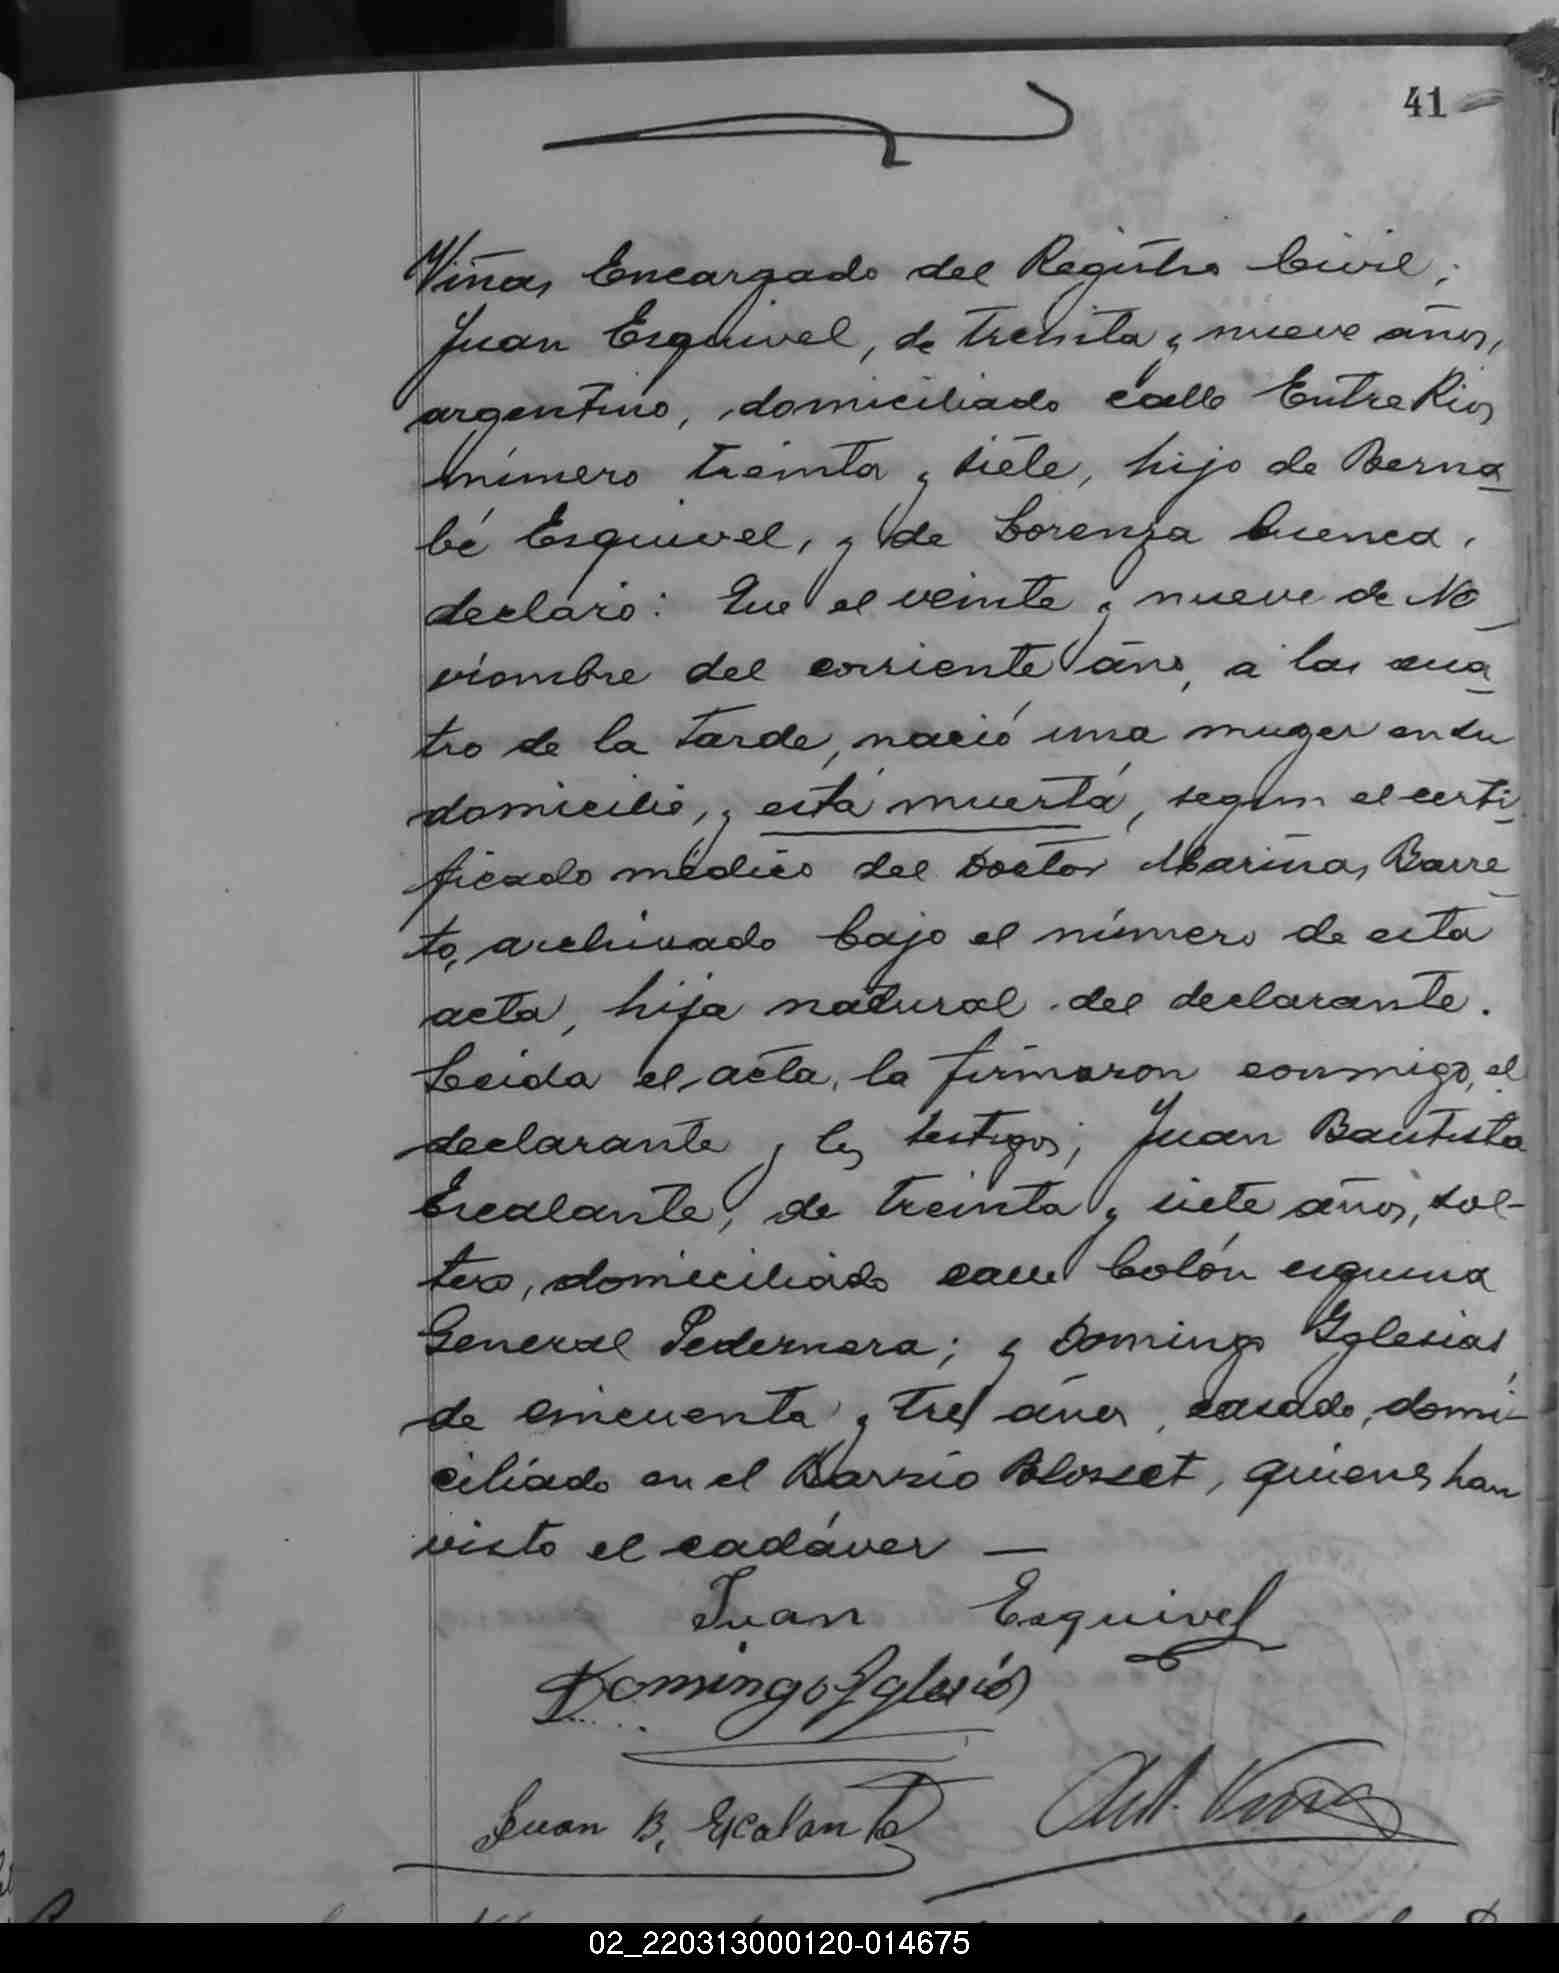 41
Viñas Encargado del Registro Civil;
Juan Esquivel, de treinta y nueve años,
argentino, domiciliado calle Entre Rios
número treinta y siete, hijo de Berna
bé Esquivel, y de Lorenza Cuenca,
declaró: Que el veinte y nueve de No
viembre del corriente año, a las cua
tro de la tarde, nació una muger en su
domicilio, y está muerta, segun el certi
ficado médico del Doctor Mariñas Barre
to, archivado bajo el número de esta
acta, hija natural del declarante.
Leida el acta, la firmaron conmigo, el
declarante y los testigos; Juan Bautista
Escalante, de treinta y siete años, sol-
tero, domiciliado calle Colón esquina
General Pedernera; y Domingo Yglesias,
de cincuenta y tres años, casado, domi-
ciliado en el Barrio Blosset, quienes han
visto el cadáver —
Juan Esquivel
Domingo Yglesias
Juan B. Escalante
Viñas
02_220313000120-014675